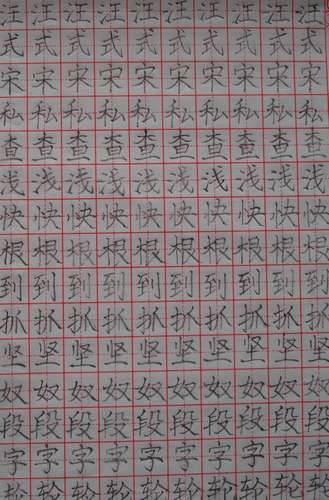 汪汪汪汪汪汪汪汪汪汪
式式式式式式式式式式
宋宋宋宋宋宋宋宋宋宋
私私私私私私私私私私
查查查查查查查查查查
浅浅浅浅浅浅浅浅浅浅
快快快快快快快快快快
根根根根根根根根根根
到到到到到到到到到到
抓抓抓抓抓抓抓抓抓抓
坚坚坚坚坚坚坚坚坚坚
奴奴奴奴奴奴奴奴奴奴
段段段段段段段段段段
字字字字字字字字字字
轮轮轮轮轮轮轮轮轮轮